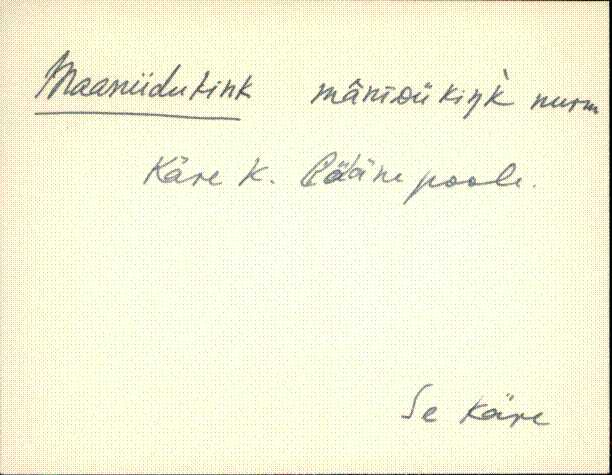 Maaniidukink mâni̮öü kiŋk̀ nurm
Käre k. Lääne poole.
Se Käre